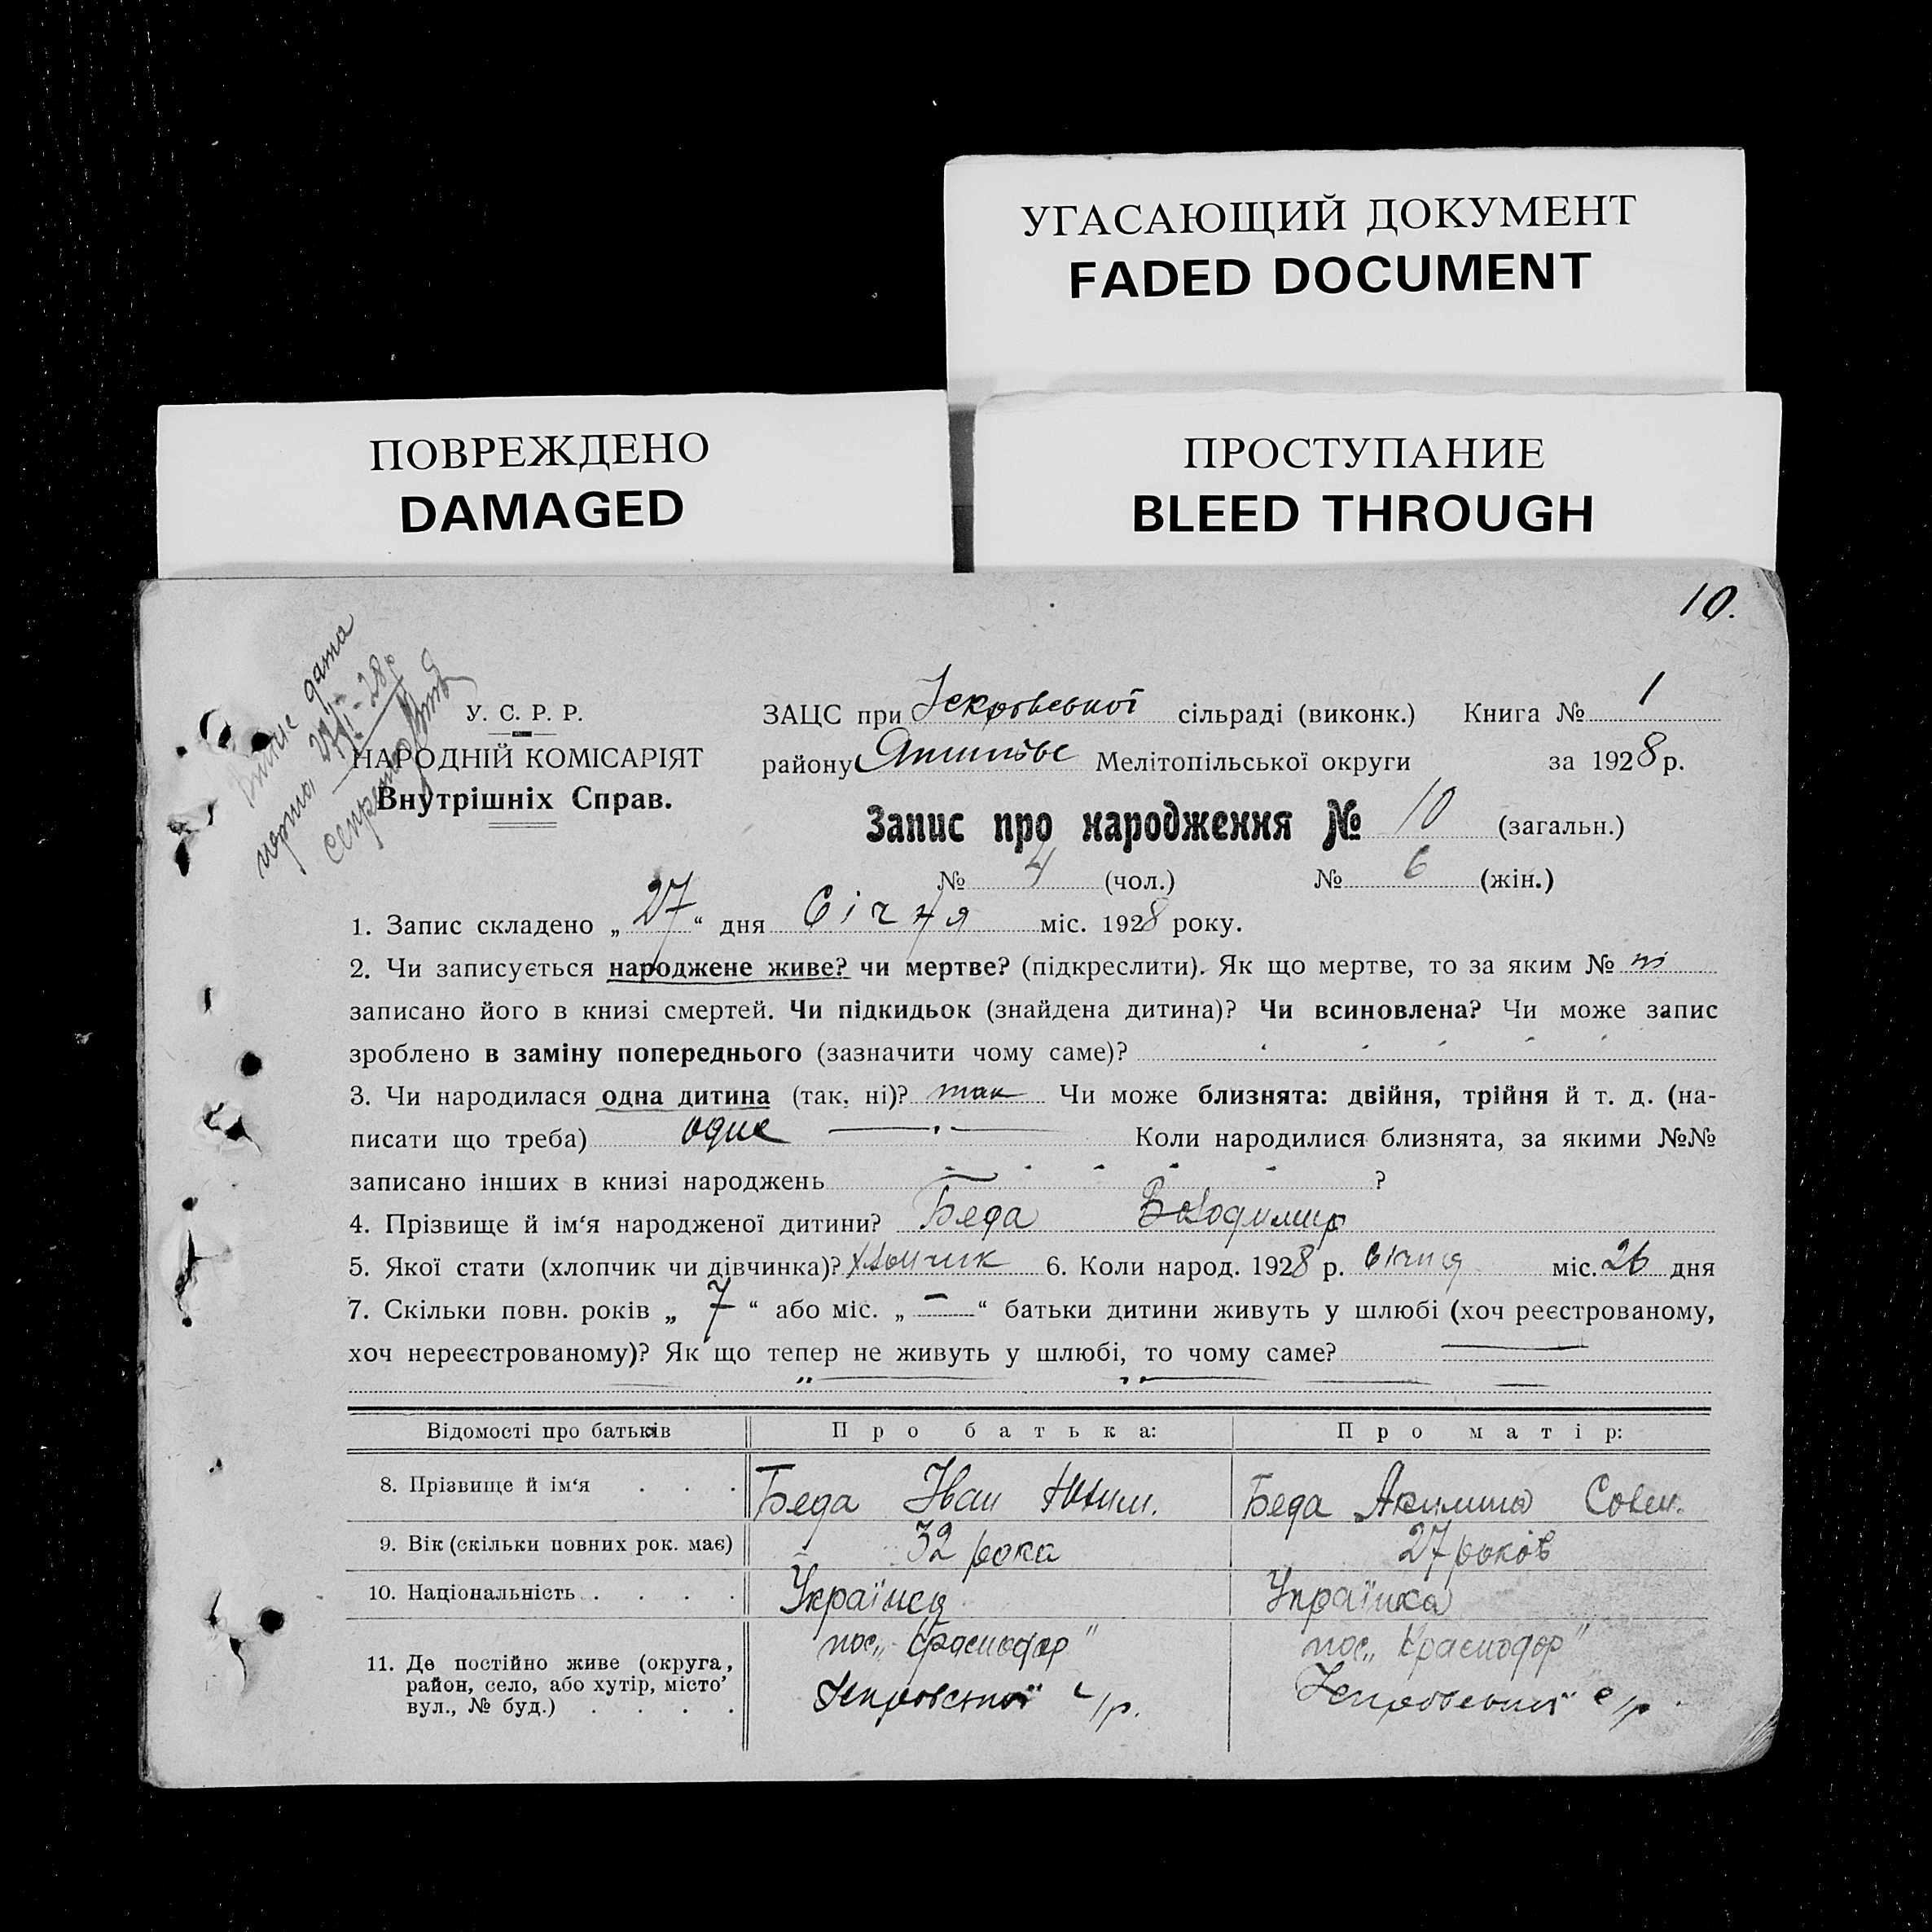 УГАСАЮЩИЙ ДОКУМЕНТ
FADED DOCUMENT
ПОВРЕЖДЕНО
DAMAGED
ПРОСТУПАНИЕ
BLEED THROUGH
10.
дата
У. С. Р. Р.
НАРОДНІЙ КОМІСАРІЯТ
Внутрішніх Справ.
ЗАЦС при Іскровської сільраді (виконк.) Книга № 1
району Мелітопільської округи за 1928 р.
Запис про народження № 10 (загальн.)
№ 4 (чол.) № 6 (жін.)
1. Запис складено „ 27 “ дня Січня міс. 1928 року.
2. Чи записується народжене живе? чи мертве? (підкреслити). Як що мертве, то за яким № ні
записано його в книзі смертей. Чи підкидьок (знайдена дитина)? Чи всиновлена? Чи може запис
зроблено в заміну попереднього (зазначити чому саме)?
3. Чи народилася одна дитина (так, ні)? так Чи може близнята: двійня, трійня й т. д. (на-
писати що треба) одне Коли народилися близнята, за якими №№
записано інших в книзі народжень ?
4. Прізвище й ім‘я народженої дитини? Беда Володимир
5. Якої стати (хлопчик чи дівчинка)? хлопчик 6. Коли народ. 1928 р. січня міс. 26 дня
7. Скільки повн. років „ 7 “ або міс. „ — “ батьки дитини живуть у шлюбі (хоч реєстрованому,
хоч нереєстрованому)? Як що тепер не живуть у шлюбі, то чому саме?
Відомості про батьків Про батька: Про матір:
8. Прізвище й ім‘я . . . Беда Іван Беда
9. Вік (скільки повних рок. має) 32 рока 27 років
10. Національність . . . . Українец Українка
11. Де постійно живе (округа, район, село, або хутір, місто’ вул., № буд.) . . . .
пос. „Краснодар” пос. „Краснодор”
Іскровської с/р. Іскровської с/р.